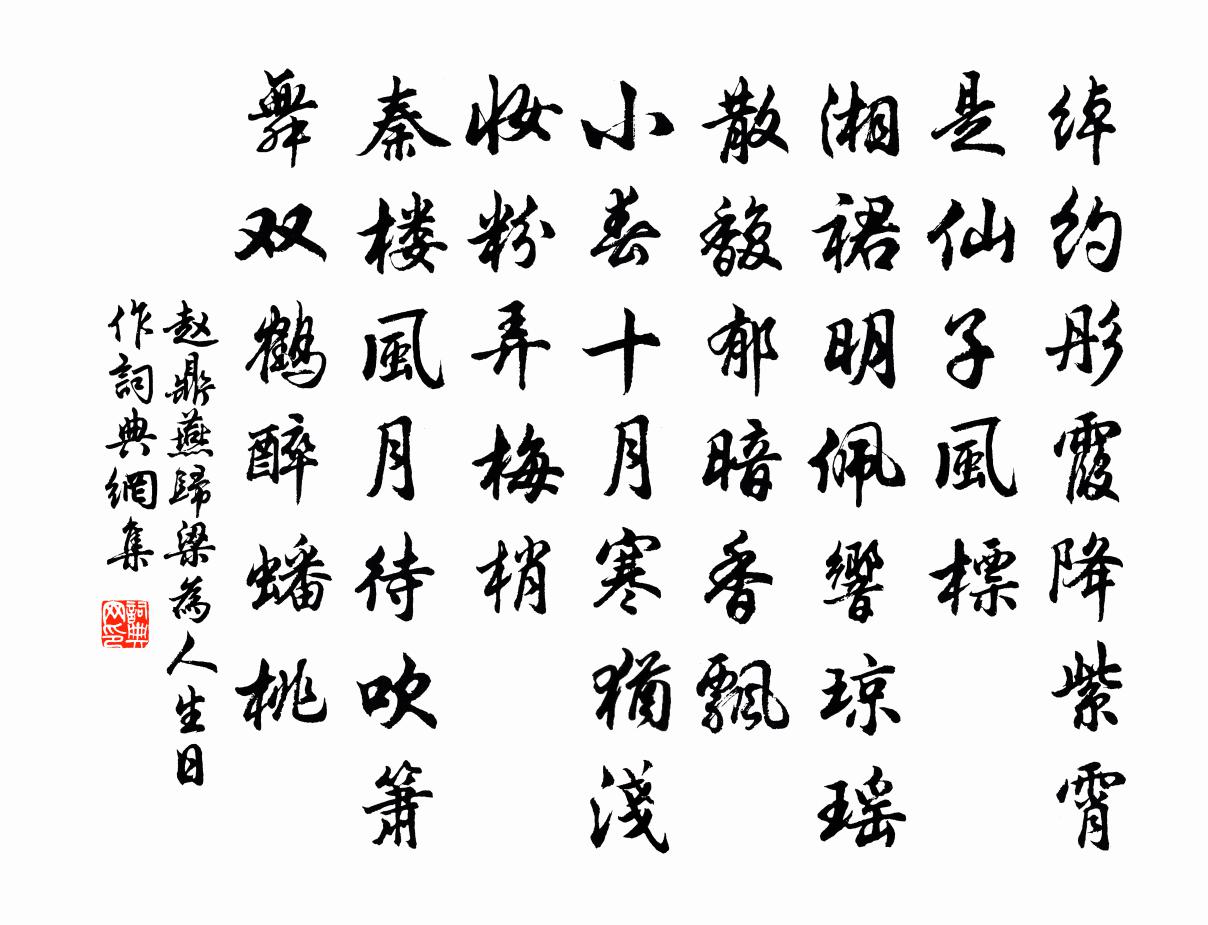 绰约彤霞降紫霄
是仙子風標
湘裙明佩響琼瑶
散馥郁暗香飄
小春十月寒猶淺
妆粉弄梅梢
秦楼風月待吹箫
舞双鹤醉蟠桃
赵鼎燕歸梁為人生日
作詞典網集
詞典网印